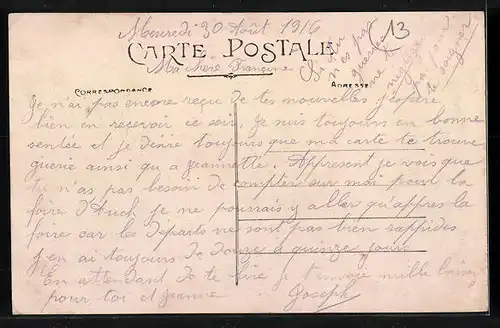 Mercredi 30 Août 1916
13
CARTE POSTALE
Ma chère Francine
Si tu
n'es pas
guérie
ne te
néglige
pas pour
te soigner
CORRESPONDANCE
ADRESSE
Je n'ai pas encore reçu de tes nouvelles j'espère
bien en recevoir ce soir. Je suis toujours en bonne
sentée et je désire toujours que ma carte te trouve
guerie ainsi qu a jeannette. Appresent je vois que
tu n'as pas besoin de compter sur moi pour la
foire d'Auch je ne pourrais y aller qu'appres la
foire car les departs ne sont pas bien rappides
j'en ai toujours de douze a quinze jours
En attendant de te lire je t'envoie mille baisers
pour toi et jeanne Joseph